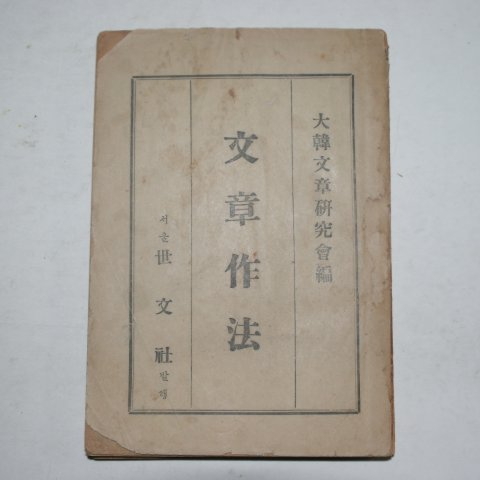 大韓文章硏究會編
文章作法
서울 世文社 발행